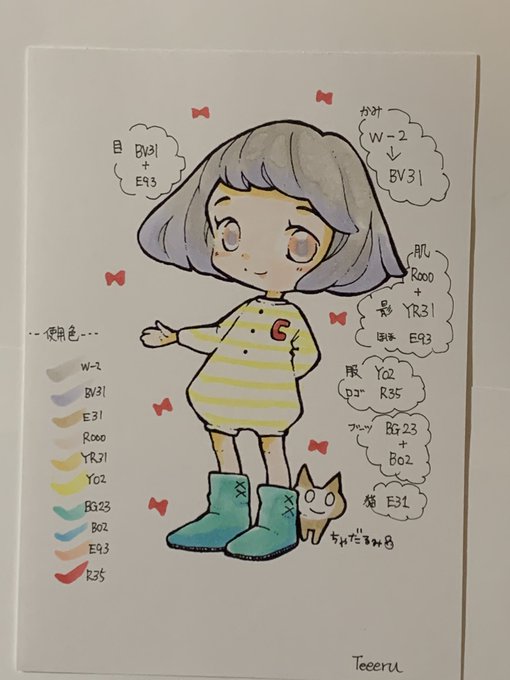 かみ
W-2
↓
BV31
目
BV31
+
E93
肌
R000
+
影 YR31
ほほ E93
服 Y02
ロゴ R35
ブーツ BG23
+
B02
猫 E31
C
--使用色---
W-2
BV31
E31
R000
YR31
Y02
BG23
B02
E93
R35
ちゃだるみ
Teeeru